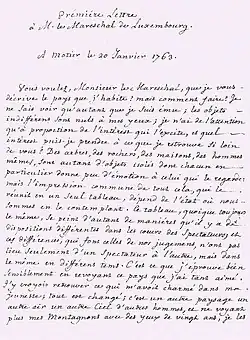 Première Lettre
à M. les Mareschal de Luxembourg.
A Motier le 20 Janvier 1763.
Vous voulez, Monsieur les Mareschal, que je vous
décrive le pays que j'habite? mais comment faire? Je
ne sais voir qu'autant que je suis ému; les objets
indifférens sont nuls à mes yeux; je n'ai de l'attention
qu'à proportion de l'intérest qui l'excite, et quel
intérest puis-je prendre à ce que je retrouve si loin
de vous? Des arbres, des rochers, des maisons, des hommes
mêmes, sont autant d'objets isolés dont chacun en
particulier donne peu d'émotion à celui qui le regarde:
mais l'impression commune de tout cela, qui le
réunit en un seul tableau, dépend de l'état où nous
sommes en le contemplant. Ce tableau, quoique toujours
le même, se peint d'autant de manières qu'il y a de
dispositions différentes dans les cœurs des spectateurs; et
ces différences, qui font celles de nos jugemens, n'ont pas
lieu seulement d'un spectateur à l'autre, mais dans
le même en différens tems. C'est ce que j'éprouve bien
sensiblement en revoyant ce pays que j'ai tant aimé.
J'y croyois retrouver ce qui m'avoit charmé dans ma
jeunesse; tout est changé; c'est un autre paysage, un
autre air, un autre Ciel, d'autres hommes, et ne voyant
plus mes Montagnons avec des yeux de vingt ans, je les